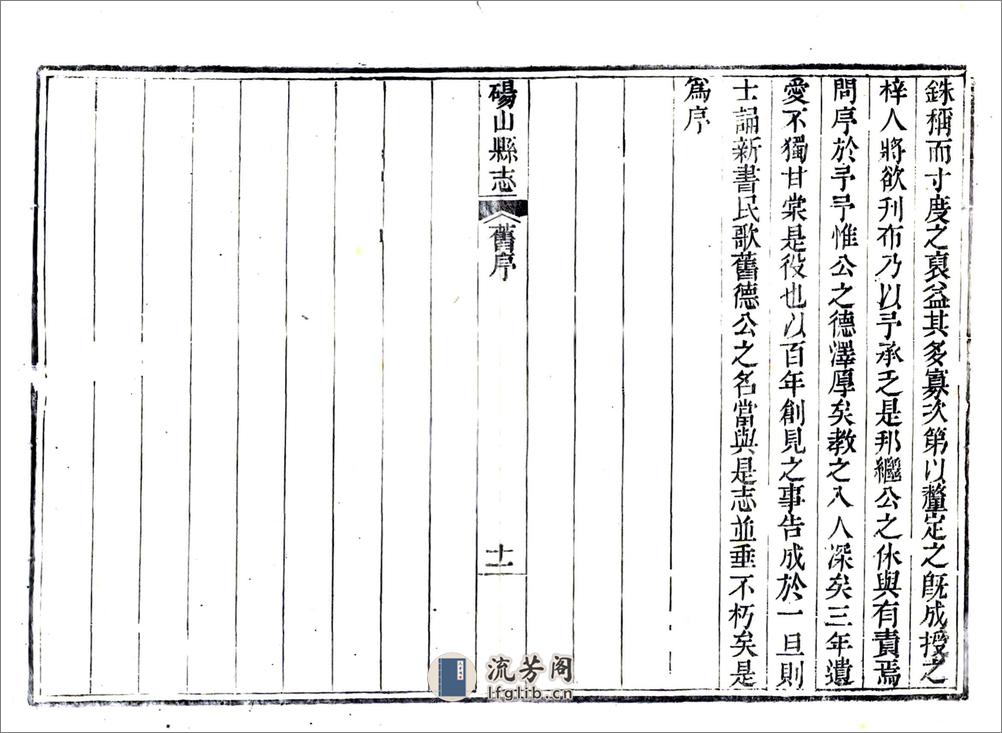 銖稱而寸度之裒益其多寡次第以釐定之既成授之
梓人將欲刋布乃以予承乏是邦繼公之休與有責焉
問序於予予惟公之德澤厚矣教之入人深矣三年遺
愛不獨甘棠是役也以百年創見之事告成於一旦則
士誦新書民歌舊德公之名當與是志並垂不朽矣是
為序
碭山縣志
舊序
十一
流芳阁
lfglib.cn